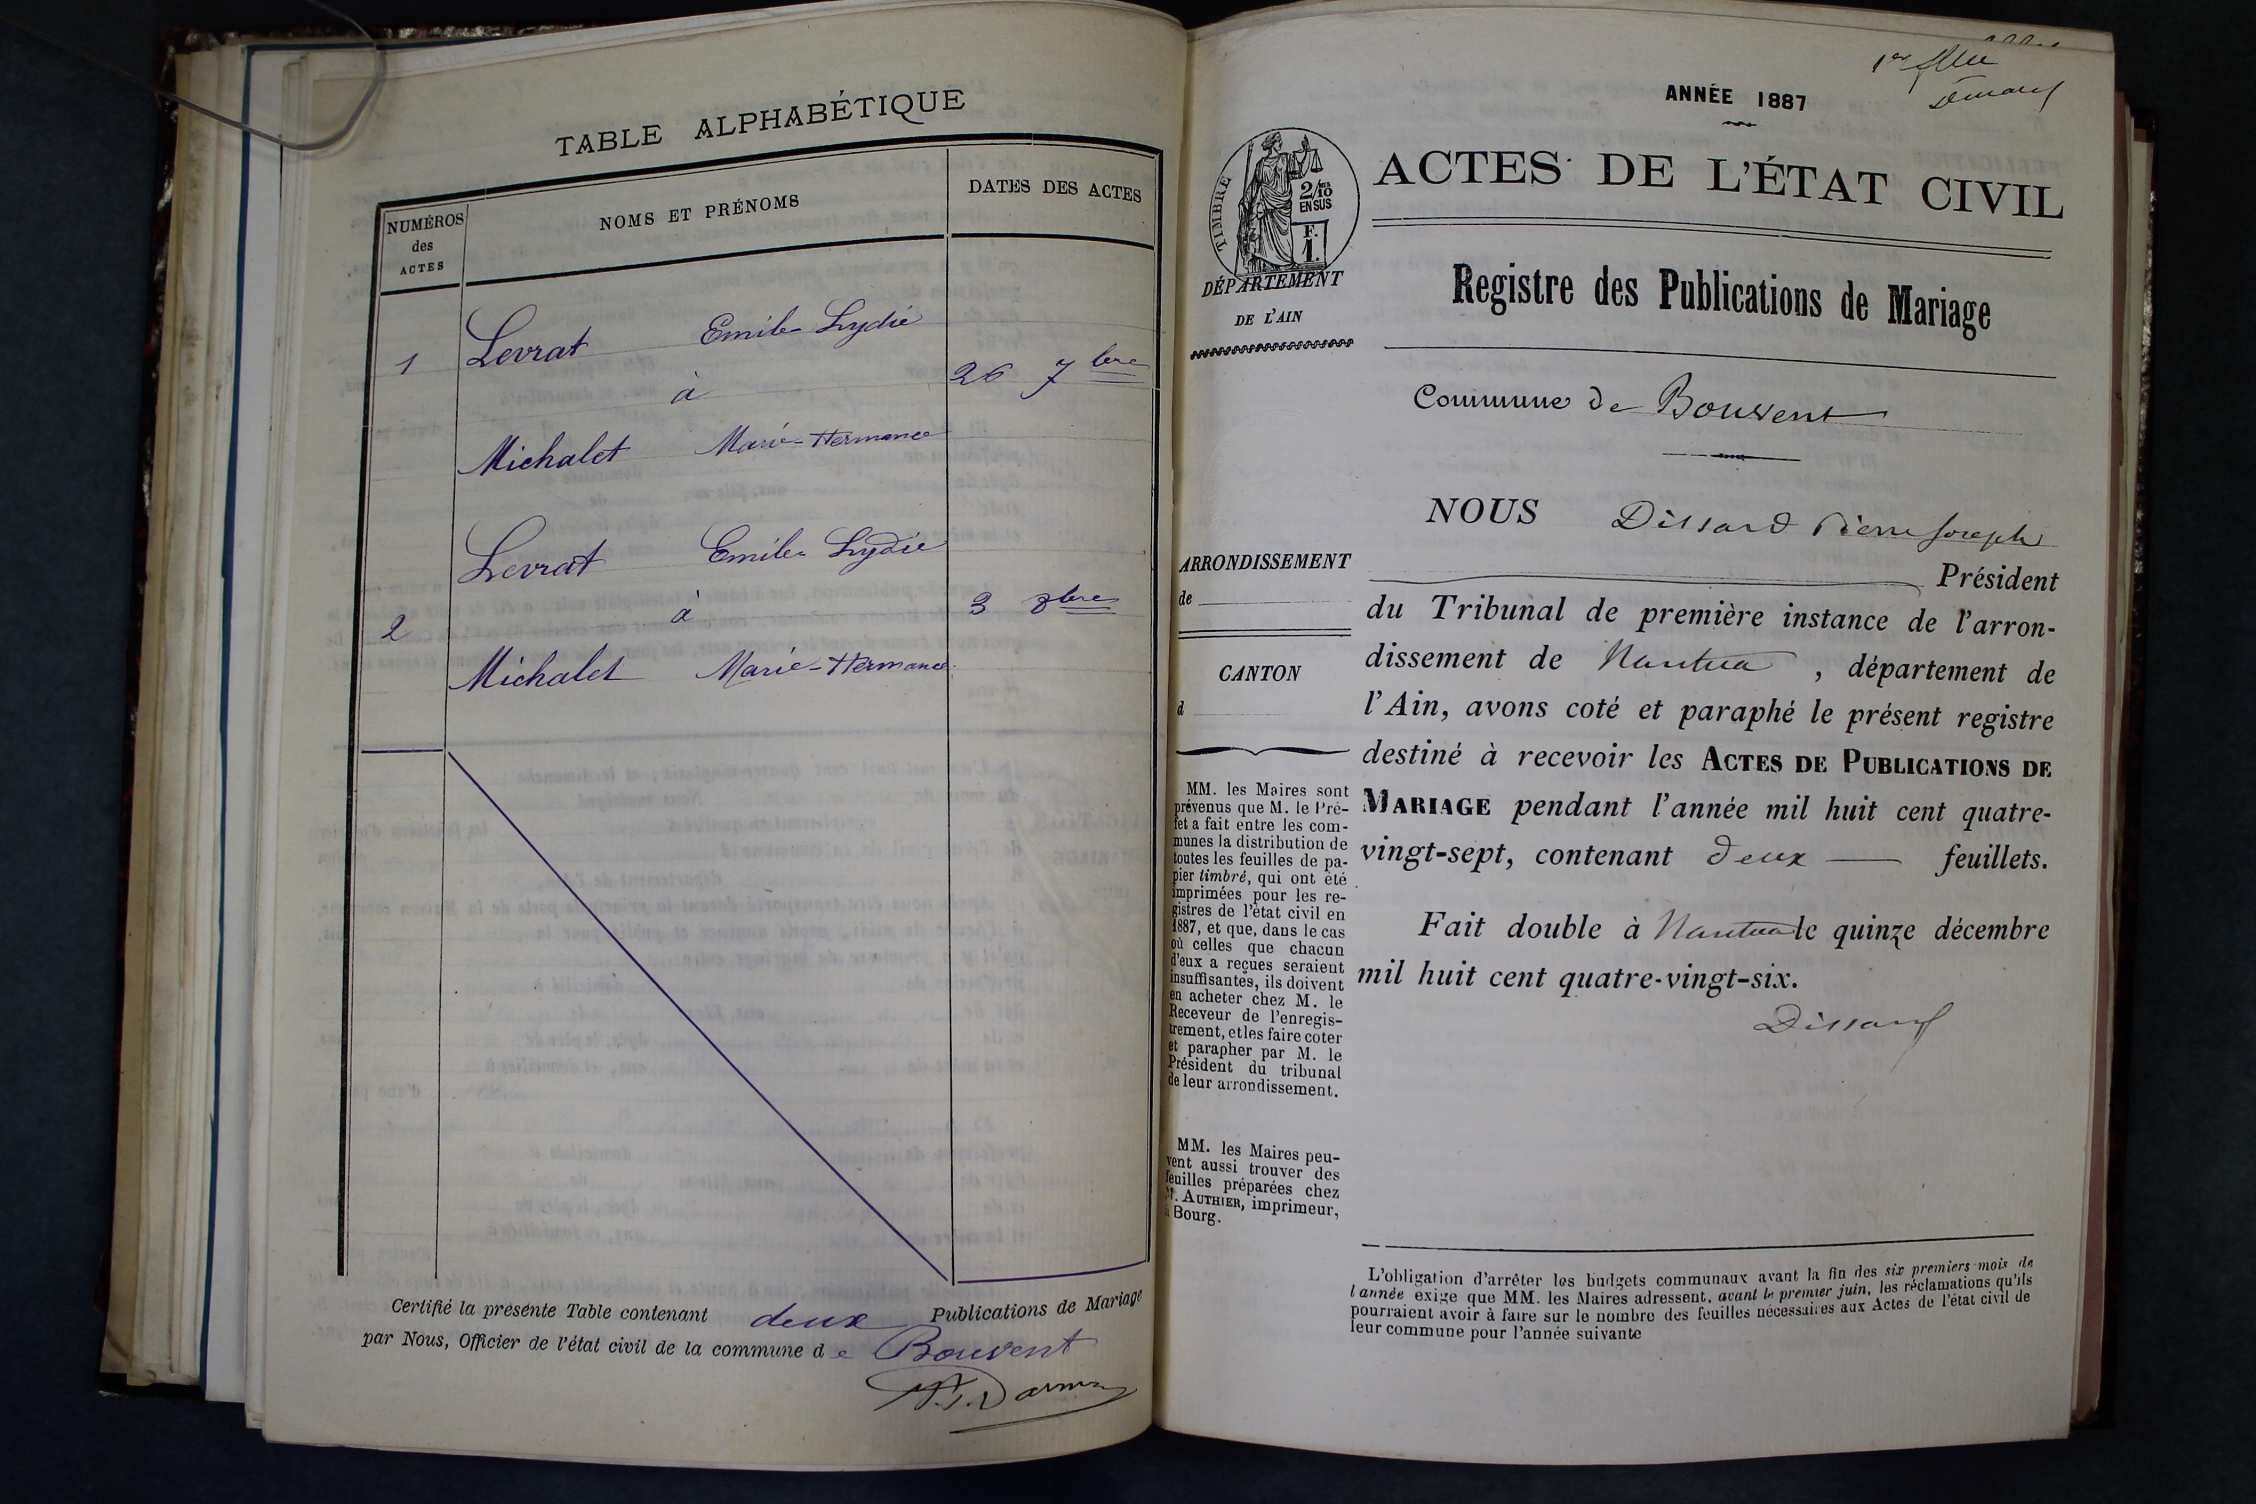 TABLE ALPHABÉTIQUE
NUMÉROS
des
ACTES
NOMS ET PRÉNOMS
DATES DES ACTES
Levrat Emile Lydie
1
à
26 7bre
Michalet Marie-Hermance
Levrat Emile Lydie
2
à
3 8bre
Michalet Marie-Hermance
Certifié la présente Table contenant deux Publications de Mariage
par Nous, Officier de l'état civil de la commune de Bouvent
1er
ANNÉE 1887
TIMBRE
2/10
EN SUS
F.
1.
ACTES DE L'ÉTAT CIVIL
DÉPARTEMENT
DE L'AIN
Registre des Publications de Mariage
Commune de Bouvent
ARRONDISSEMENT
de
CANTON
d
MM. les Maires sont
prévenus que M. le Pré-
fet a fait entre les com-
munes la distribution de
toutes les feuilles de pa-
pier timbré, qui ont été
imprimées pour les re-
gistres de l'état civil en
1887, et que, dans le cas
où celles que chacun
d'eux a reçues seraient
insuffisantes, ils doivent
en acheter chez M. le
Receveur de l'enregis-
trement, et les faire coter
et parapher par M. le
Président du tribunal
de leur arrondissement.
MM. les Maires peu-
vent aussi trouver des
feuilles préparées chez
M. AUTHIER, imprimeur,
à Bourg.
NOUS Dissard Pierre Joseph
Président
du Tribunal de première instance de l'arron-
dissement de Nantua, département de
l'Ain, avons coté et paraphé le présent registre
destiné à recevoir les ACTES DE PUBLICATIONS DE
MARIAGE pendant l'année mil huit cent quatre-
vingt-sept, contenant deux feuillets.
Fait double à Nantua le quinze décembre
mil huit cent quatre-vingt-six.
Dissard
L'obligation d'arrêter les budgets communaux avant la fin des six premiers mois de
l'année exige que MM. les Maires adressent, avant le premier juin, les réclamations qu'ils
pourraient avoir à faire sur le nombre des feuilles nécessaires aux Actes de l'état civil de
leur commune pour l'année suivante